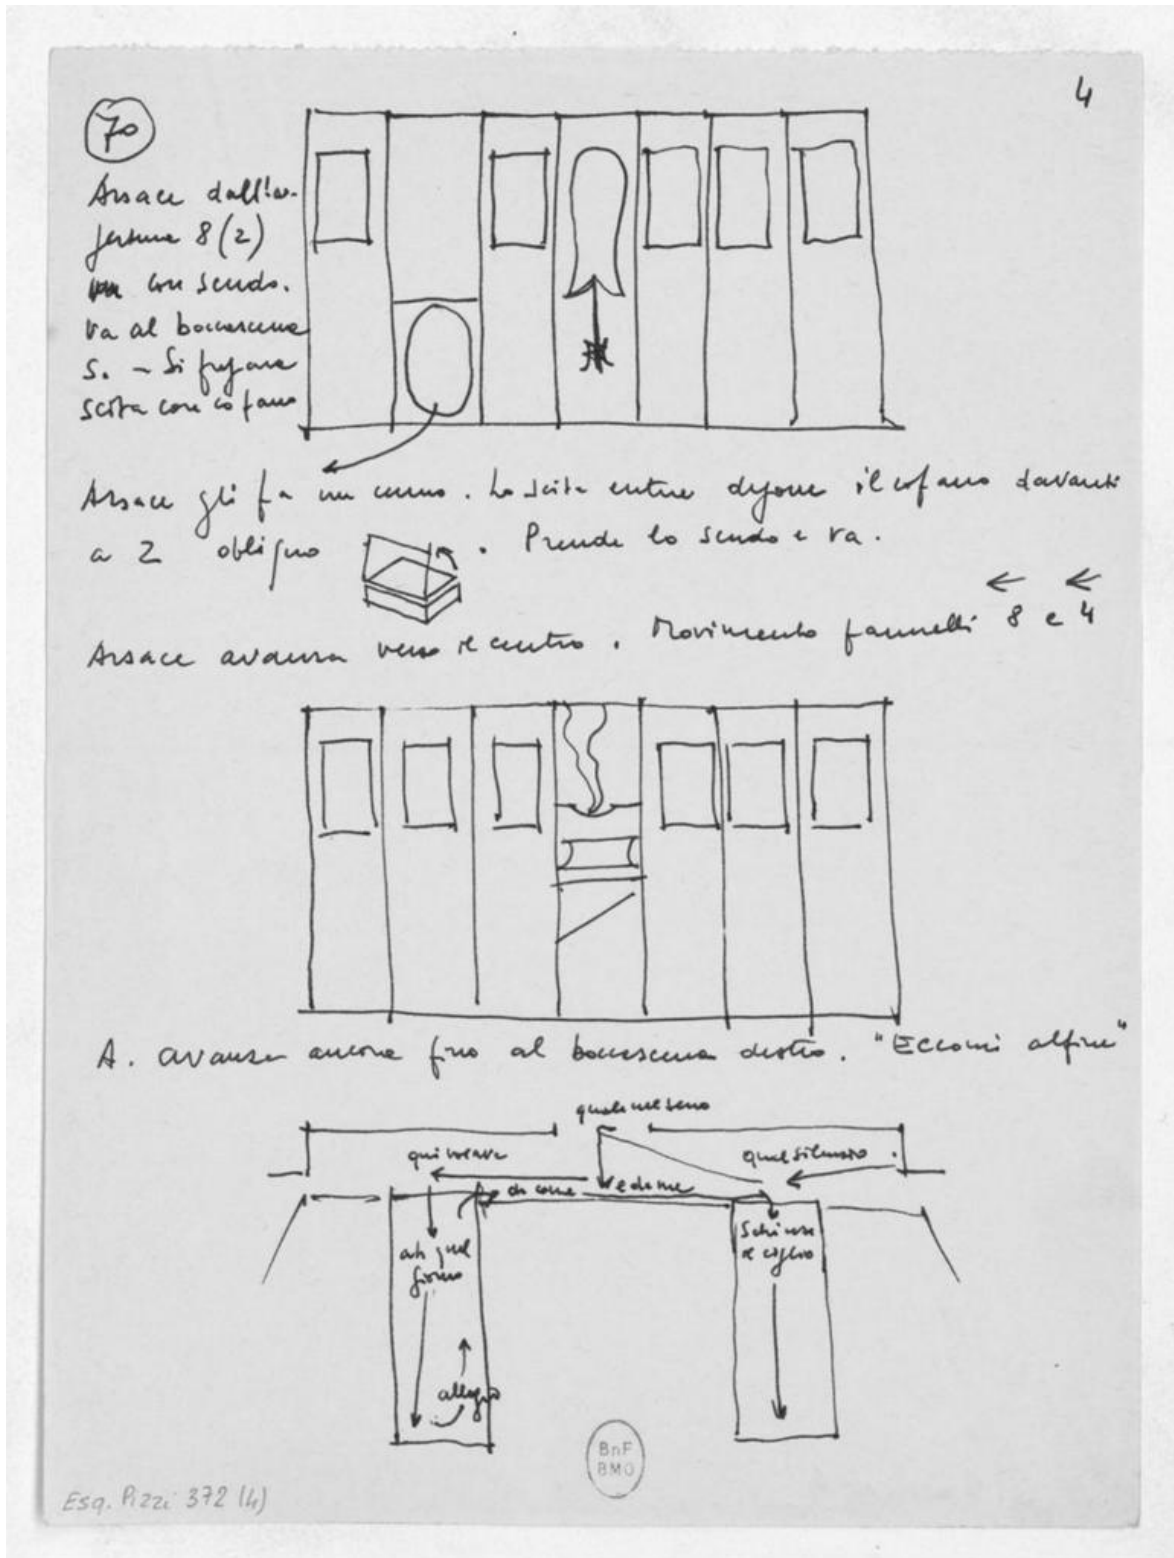 4
70
Arsace dall'a-
pertura 8 (2)
con scudo.
Va al boccascena
S. – Si
scita con cofano
Arsace gli fa un cenno. Lo scita entra depone il cofano davanti
a 2 obliquo . Prende lo scudo e va.
← ←
Arsace avanza verso il centro. Movimento pannelli 8 e 4
A. avanza ancora fino al boccascena destro. "Eccomi alfine"
quale nel seno
qui veave
quel silenzio
di come vedeme
ah quel
giorno
Schiuse
il ciglio
allegro
BnF
BMO
Esq. Pizzi 372 (4)